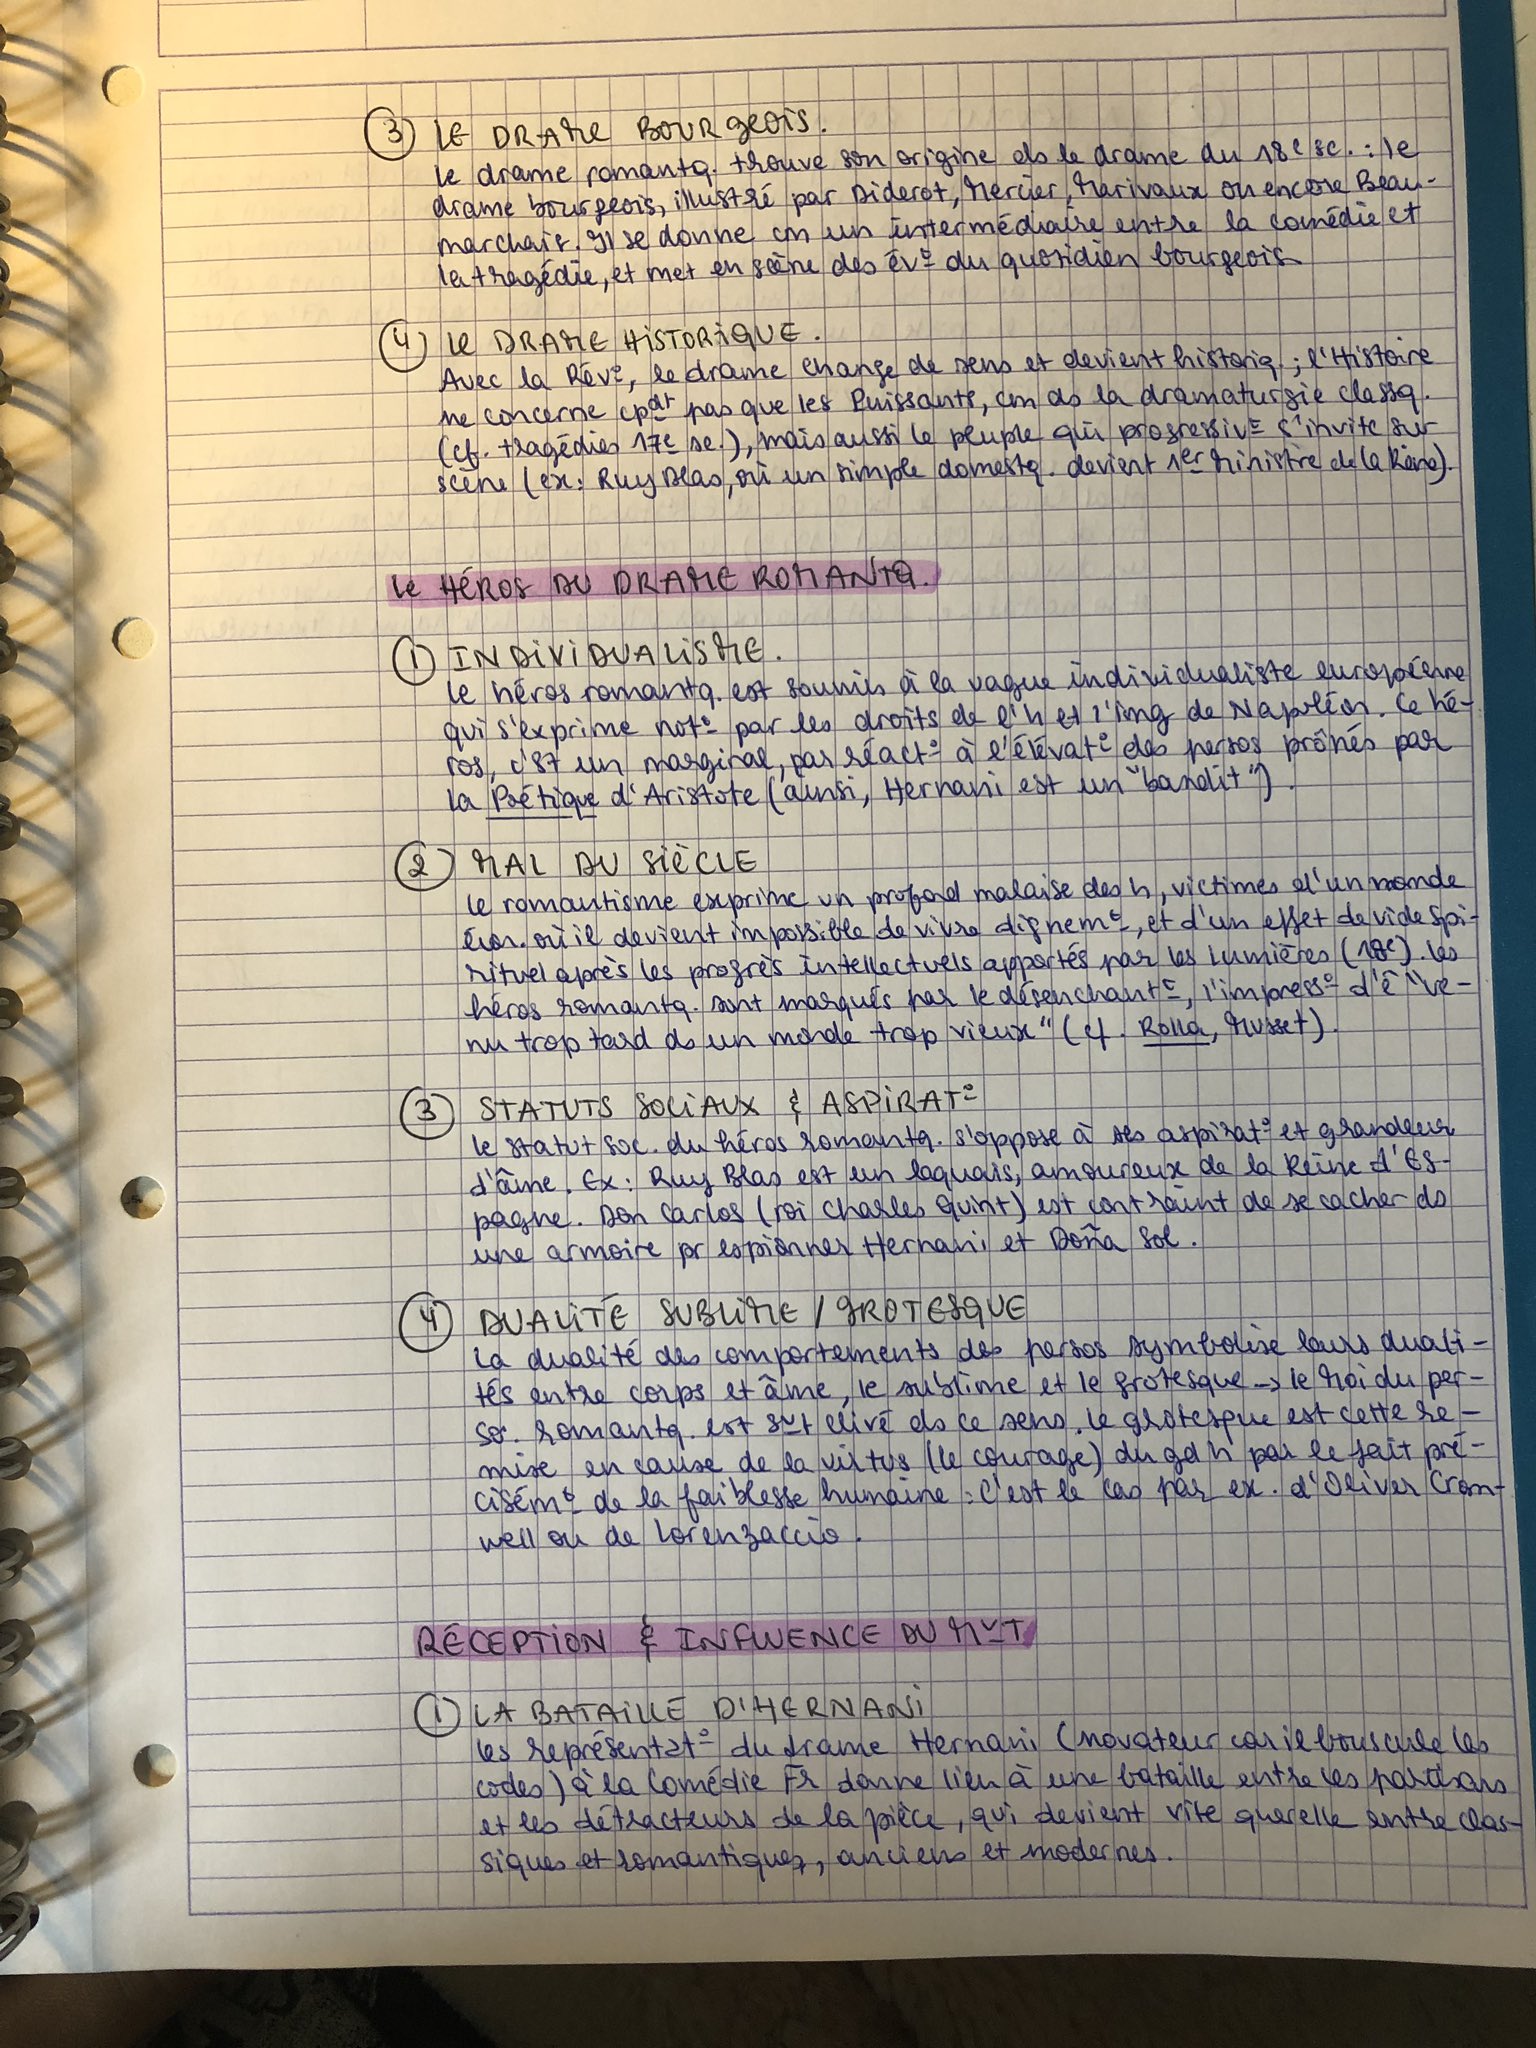 ③ LE DRAME BOURGEOIS.
Le drame romantq. trouve son origine ds le drame du 18e sc. : le
drame bourgeois, illustré par Diderot, Mercier, Marivaux ou encore Beau-
marchais. Il se donne cm un intermédiaire entre la comédie et
la tragédie, et met en scène des évo du quotidien bourgeois
④ LE DRAME HISTORIQUE.
Avec la Révo, le drame change de sens et devient historiq. ; l'Histoire
ne concerne cpdt pas que les Puissants, cm ds la dramaturgie classq.
(cf. tragédies 17e sc.), mais aussi le peuple qui progressive s'invite sur
scène (ex : Ruy Blas, où un simple domestq. devient 1er Ministre de la Reine).
LE HÉROS DU DRAME ROMANTQ.
① INDIVIDUALISME.
Le héros romantq. est soumis à la vague individualiste européenne
qui s'exprime noto par les droits de l'h et l'img de Napoléon. Ce hé-
ros, c'st un marginal, par réacto à l'élévato des persos prônés par
la Poétique d'Aristote (ainsi, Hernani est un "bandit").
② MAL DU SIÈCLE
Le romantisme exprime un profond malaise des h, victimes d'un monde
où il devient impossible de vivre dignemt, et d'un effet de vide spi-
rituel après les progrès intellectuels apportés par les Lumières (18e). Les
héros romantq. sont marqués par le désenchante, l'impresso d'ê "ve-
nu trop tard ds un monde trop vieux" (cf. Rolla, Musset).
③ STATUTS SOCIAUX & ASPIRATo
Le statut soc. du héros romantq. s'oppose à ses aspirato et grandeur
d'âme. Ex : Ruy Blas est un laquais, amoureux de la Reine d'Es-
pagne. Don Carlos (roi Charles Quint) est contraint de se cacher ds
une armoire pr espionner Hernani et Doña Sol.
④ DUALITÉ SUBLIME / GROTESQUE
La dualité des comportements des persos symbolise leurs duali-
tés entre corps et âme, le sublime et le grotesque → le Moi du per-
so. romantq. est svt clivé ds ce sens. Le grotesque est cette re-
mise en cause de la virtus (le courage) du gd h par le fait pré-
cisémt de la faiblesse humaine : c'est le cas par ex. d'Oliver Crom-
well ou de Lorenzaccio.
RÉCEPTION & INFLUENCE DU MVT
① LA BATAILLE D'HERNANI
Les représentato du drame Hernani (novateur car il bouscule les
codes) à la Comédie Fr donne lieu à une bataille entre les partisans
et les détracteurs de la pièce, qui devient vite querelle entre clas-
siques et romantiques, anciens et modernes.